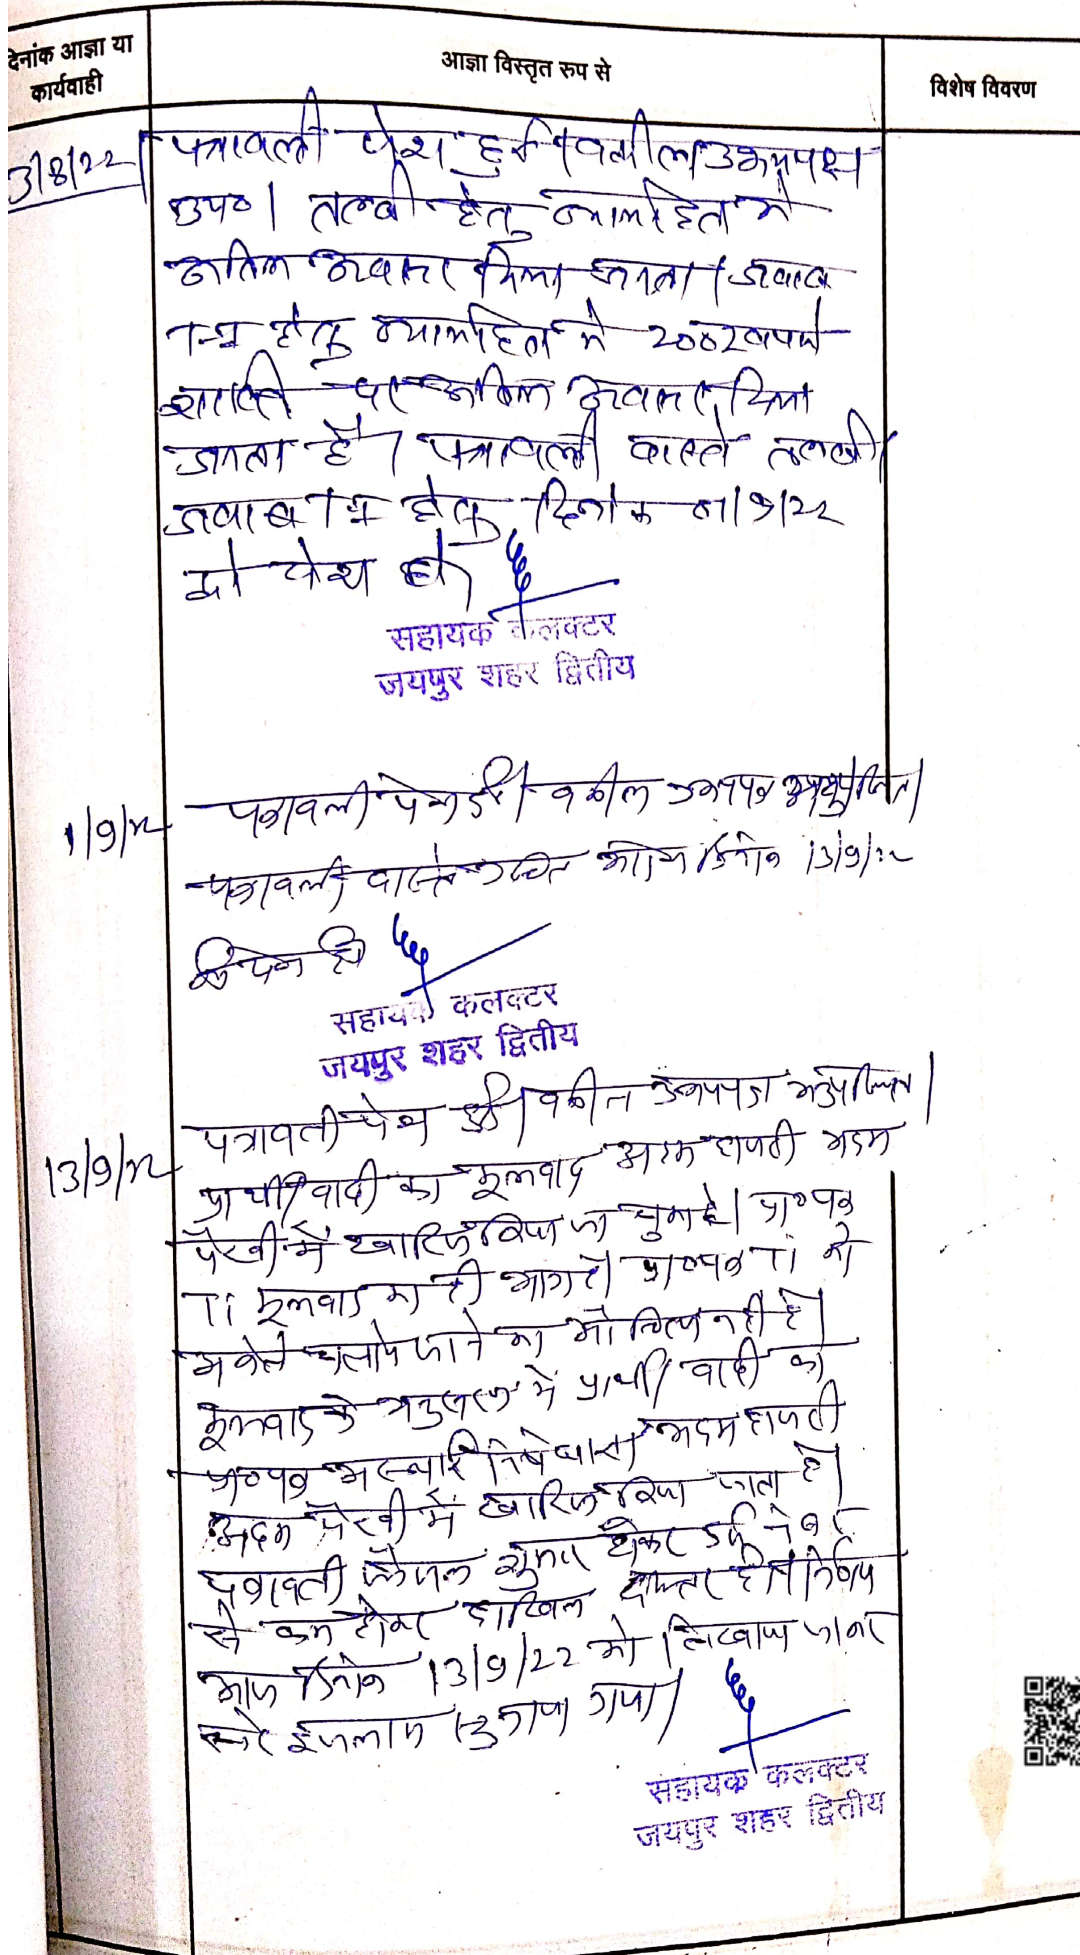 दिनांक आज्ञा या
कार्यवाही
आज्ञा विस्तृत रुप से
विशेष विवरण
3/8/22
पत्रावली पेश हुई। वकील उभयपक्ष
उप०। तलबी हेतु न्यायहित में
अंतिम अवसर दिया जाता। जवाब
हेतु न्यायहित में 200रुपये
पर अंतिम अवसर दिया
जाता है। पत्रावली वास्ते तलबी/
जवाब हेतु दिनांक 01/9/22
को पेश हो।
सहायक कलक्टर
जयपुर शहर द्वितीय
1/9/22
पत्रावली पेश हुई। वकील उभयपक्ष अनुपस्थित।
पत्रावली वास्ते उचित आदेश दिनांक 13/9/22
को पेश हो
सहायक कलक्टर
जयपुर शहर द्वितीय
13/9/22
पत्रावली पेश हुई। वकील उभयपक्ष अनुपस्थित।
प्रार्थी/वादी का मूलवाद अदम हाजरी अदम
पैरवी में खारिज किया जा चुका है। प्रा०पत्र
Ti मूलवाद का ही भाग है। प्रा०पत्र Ti को
अकेले चलाये जाने का औचित्य नहीं है।
मूलवाद के अनुसरण में प्रार्थी/वादी का
प्रा०पत्र अस्थाई निषेधाज्ञा अदम हाजरी
अदम पैरवी में खारिज किया जाता है।
पत्रावली फैसल शुमार होकर दर्ज नंबर
से कम होकर दाखिल दफ्तर हो। निर्णय
आज दिनांक 13/9/22 को लिखाया जाकर
सरे इजलास सुनाया गया।
सहायक कलक्टर
जयपुर शहर द्वितीय